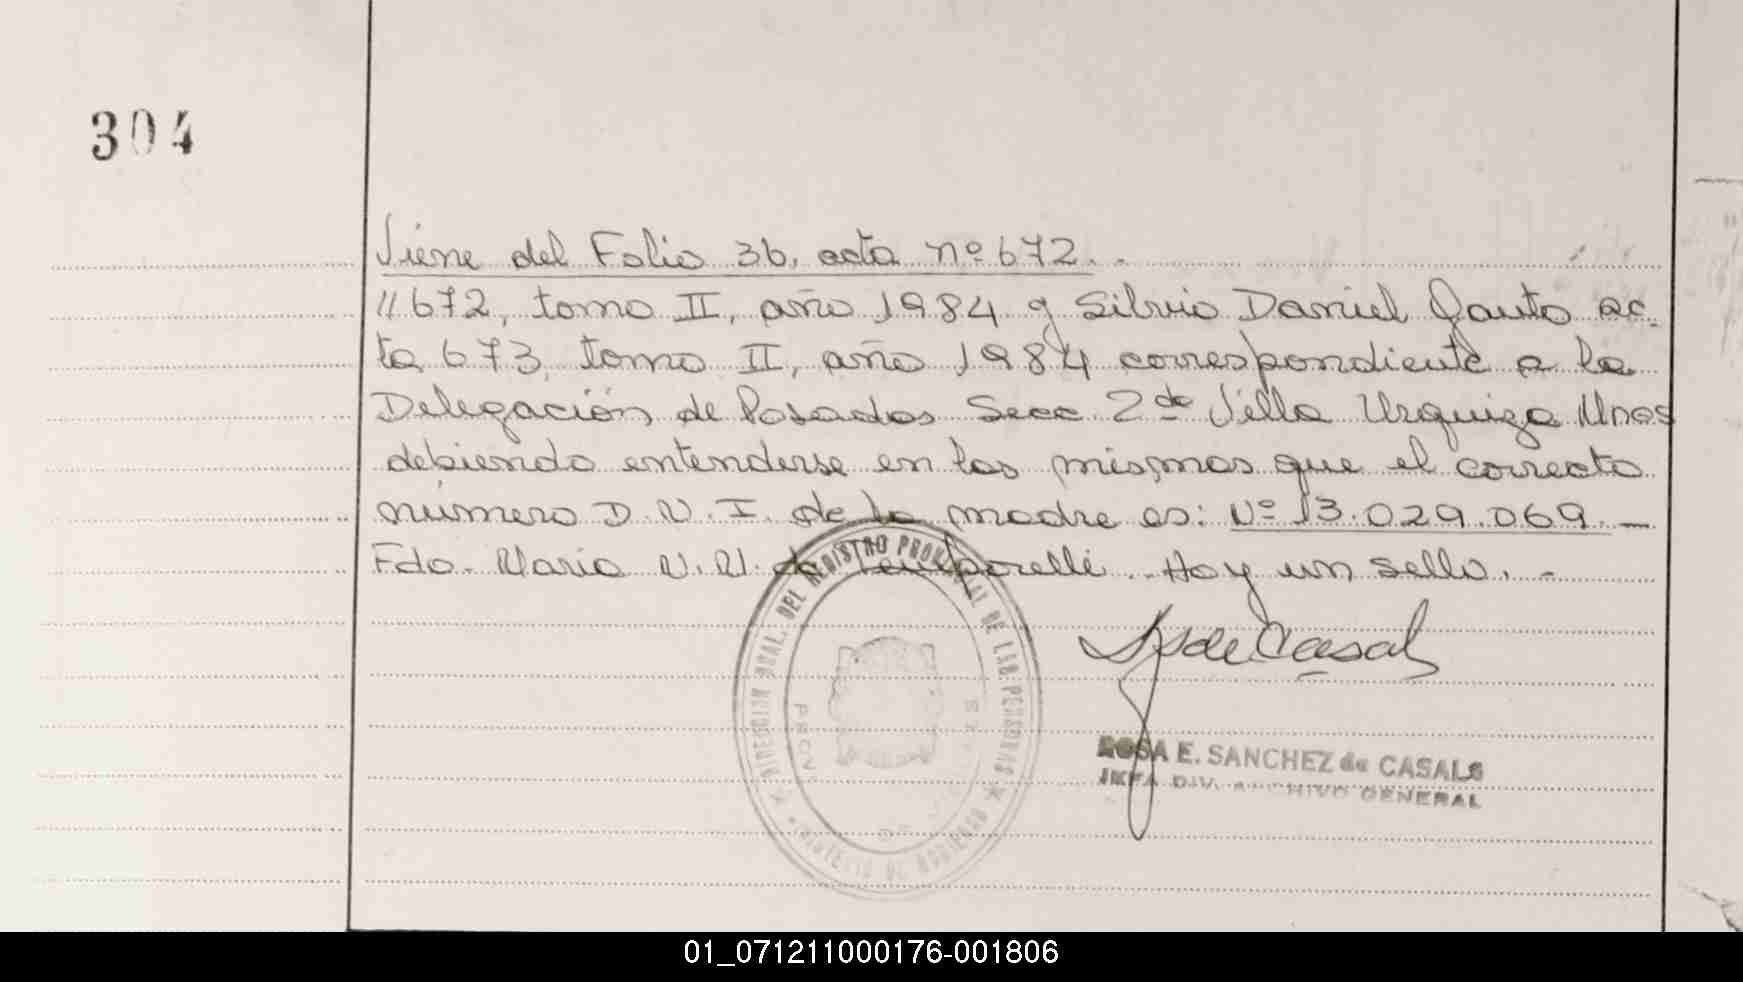 304
Viene del Folio 36, acta nº 672.
"672, tomo II, año 1984 y Silvio Daniel Gauto ac-
ta 673, tomo II, año 1984 correspondiente a la
Delegación de Posadas Secc 2da Villa Urquiza Mnes
debiendo entenderse en las mismas que el correcto
número D.N.I. de la madre es: Nº 13.029.069.—
Fdo. Maria N.N. de Temporelli. Hay un sello.-
DIRECCION GRAL. DEL REGISTRO PROVINCIAL DE LAS PERSONAS
MINISTERIO DE GOBIERNO
S. de Casals
ROSA E. SANCHEZ de CASALS
JEFA DIV. ARCHIVO GENERAL
01_071211000176-001806